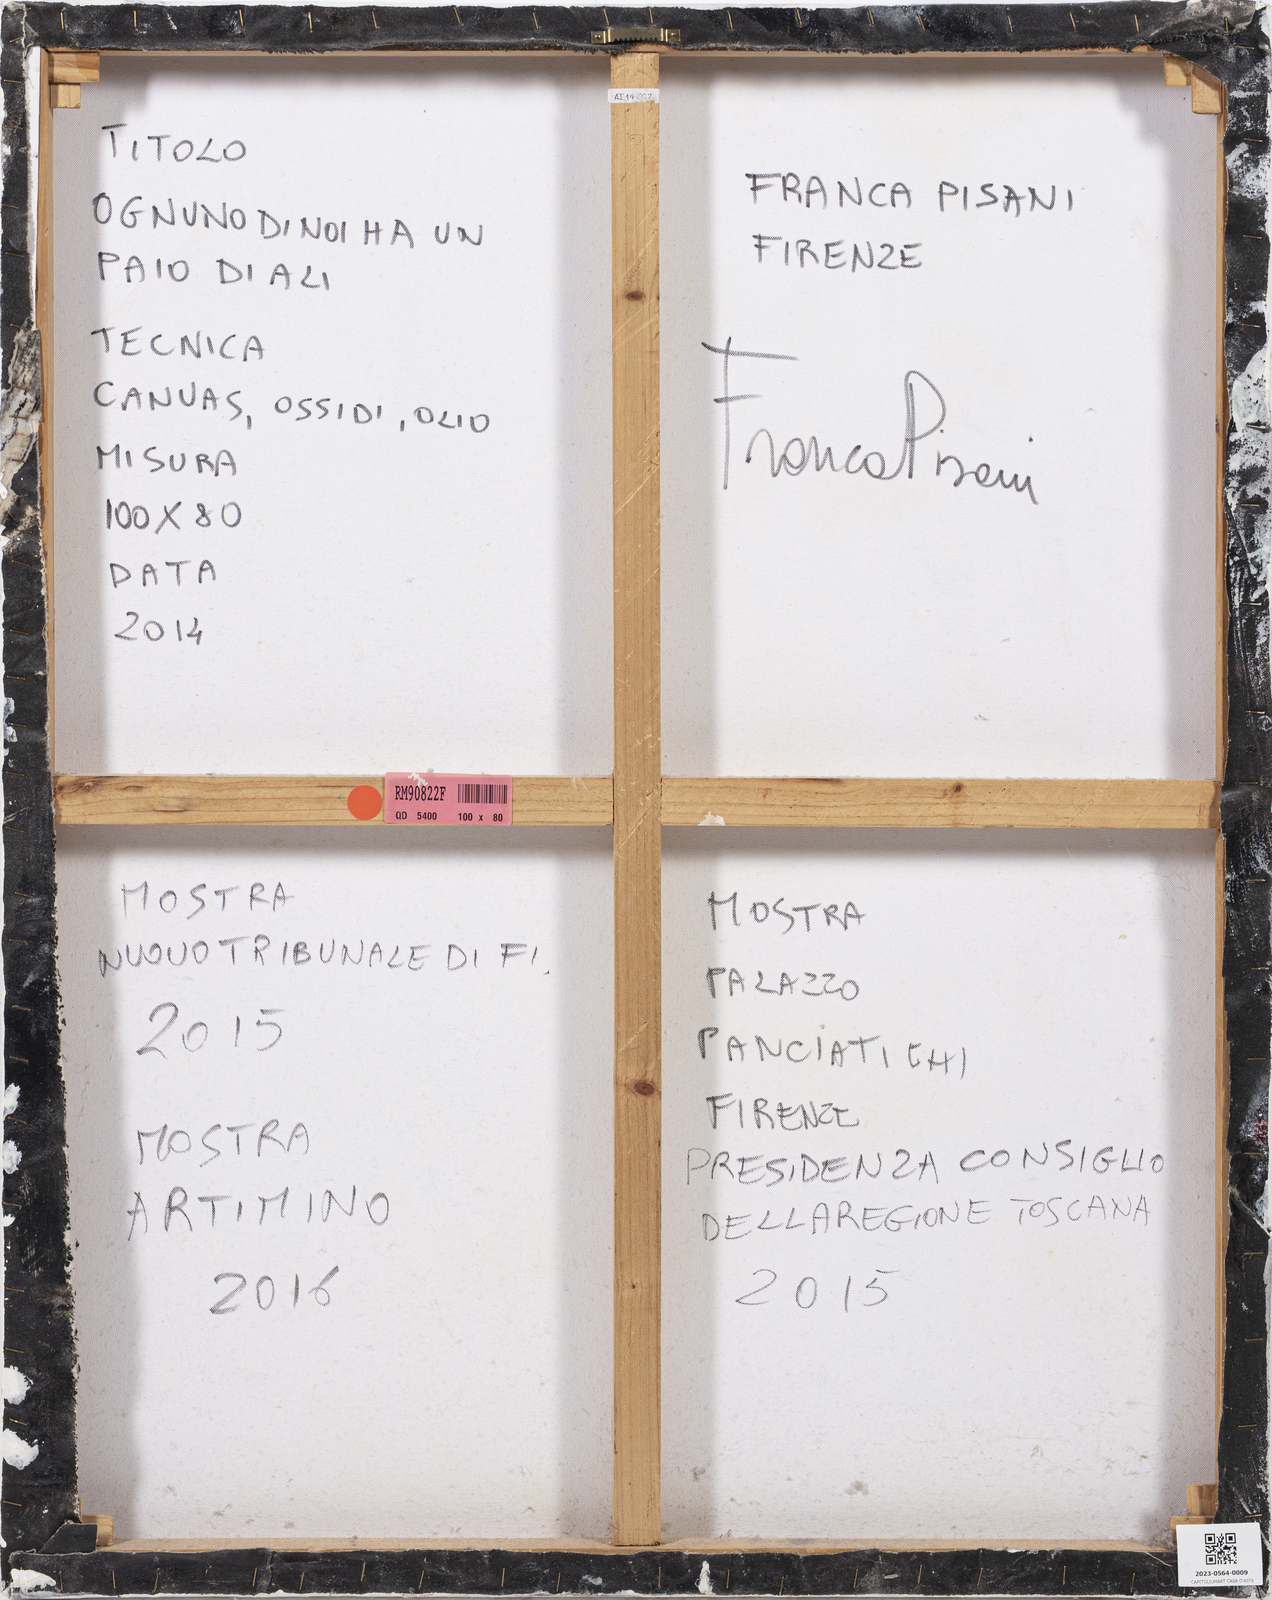 TITOLO
OGNUNO DI NOI HA UN
PAIO DI ALI
TECNICA
CANVAS, OSSIDI, OLIO
MISURA
100X80
DATA
2014
FRANCA PISANI
FIRENZE
Franca Pisani
RM90822F
QD 5400 100 x 80
MOSTRA
NUOVO TRIBUNALE DI FI.
2015
MOSTRA
ARTIMINO
2016
MOSTRA
PALAZZO
PANCIATICHI
FIRENZE
PRESIDENZA CONSIGLIO
DELLA REGIONE TOSCANA
2015
2023-0564-0009
CAPITOLIUMART CASA D'ASTE